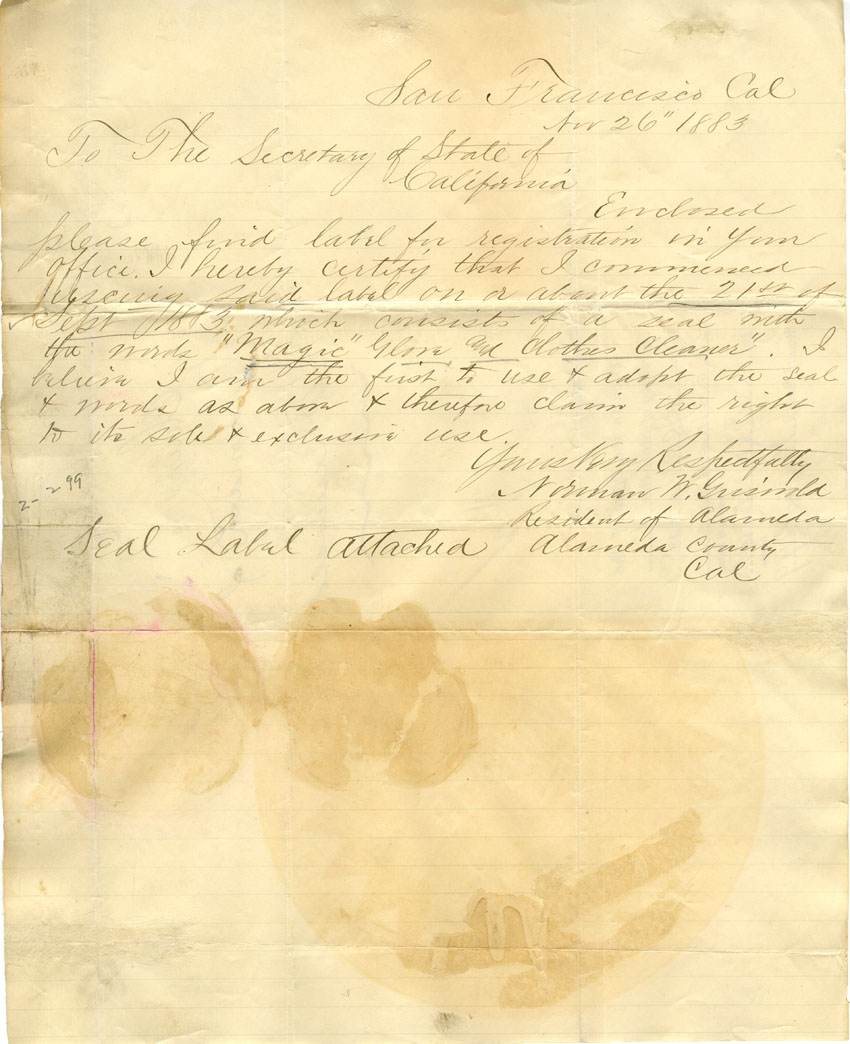 San Francisco Cal
Nov 26" 1883
To The Secretary of State of
California
Enclosed
please find label for registration in your
office. I hereby certify that I commenced
said label on or about the 21st of
Sept 1883 which consists of a seal with
the words "Magic" Glove and Clothes Cleaner". I
believe I am the first to use & adopt the seal
& words as above & therefore claim the right
to its sole & exclusive use.
Yours Very Respectfully
Norman W. Griswold
Resident of Alameda
Alameda County
Cal
2-299
Seal Label attached